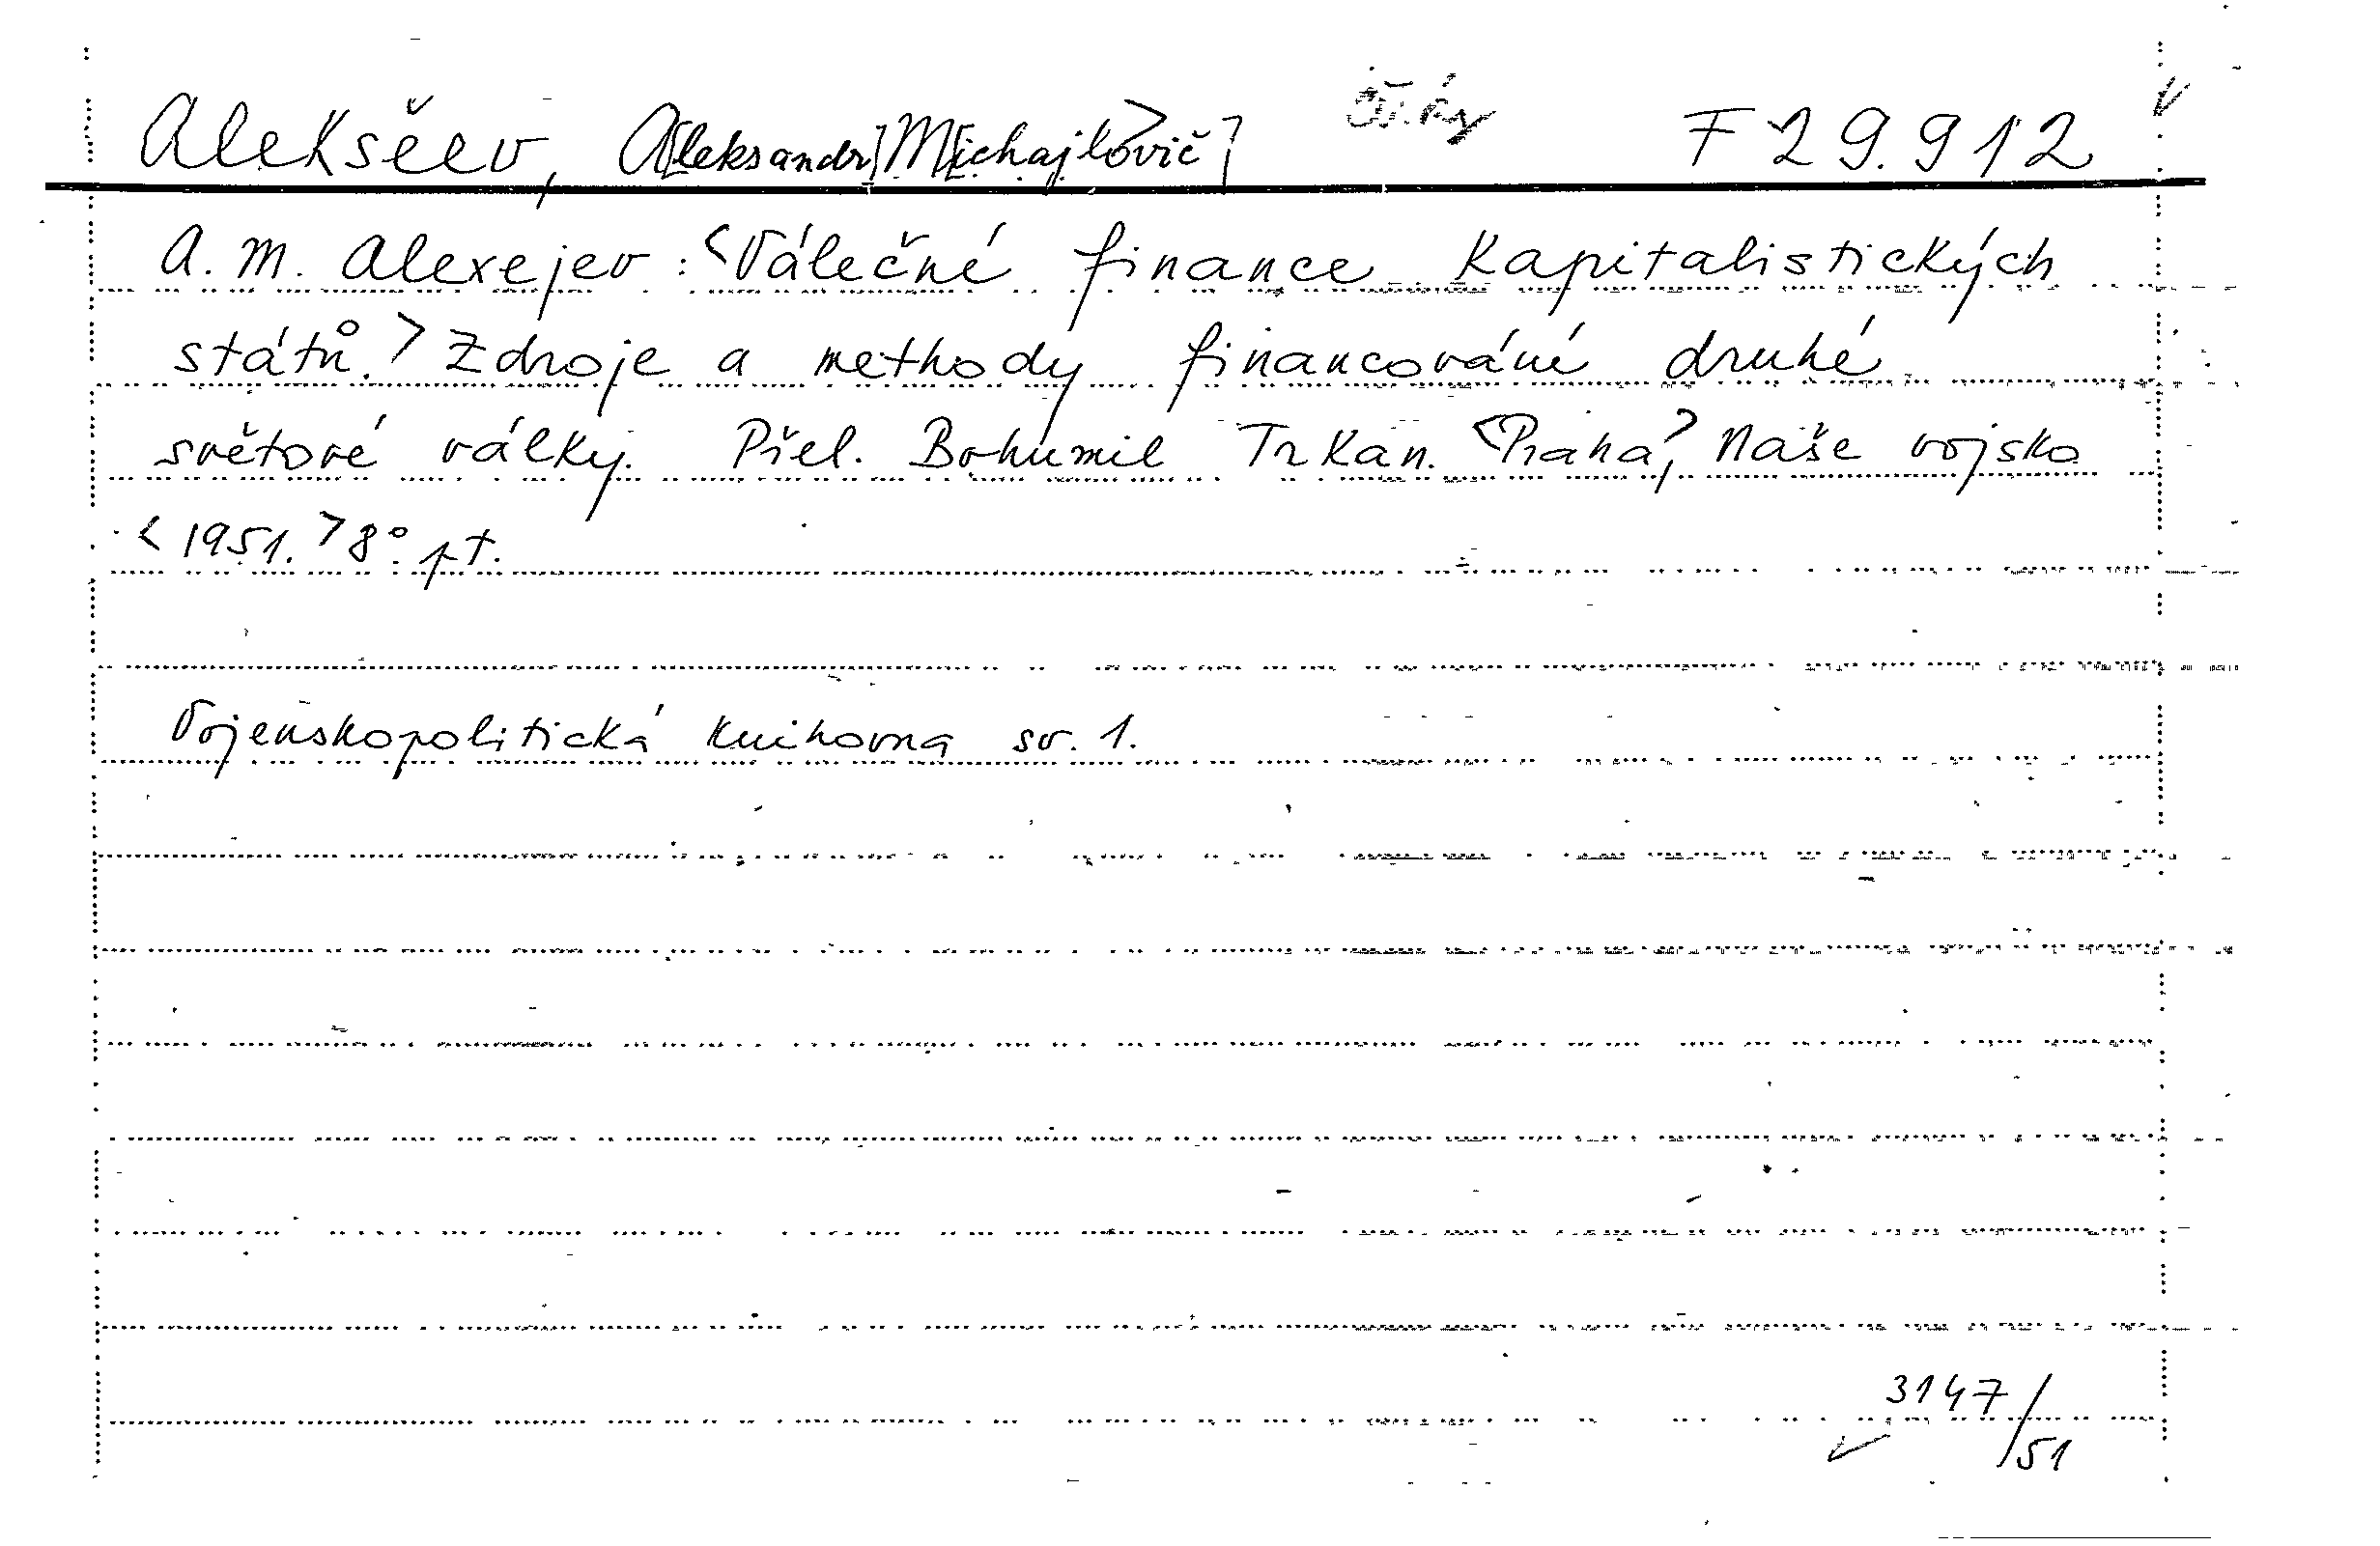 Aleksěev, A[leksandr] M[ichajlovič] F 29.912
A. M. Alexejev: <Válečné finance kapitalistických
států.> Zdroje a methody financování druhé
světové války. Přel. Bohumil Trkan. <Praha,> Naše vojsko
<1951.> 8° pt.
Vojenskopolitická knihovna sv. 1.
3147/51